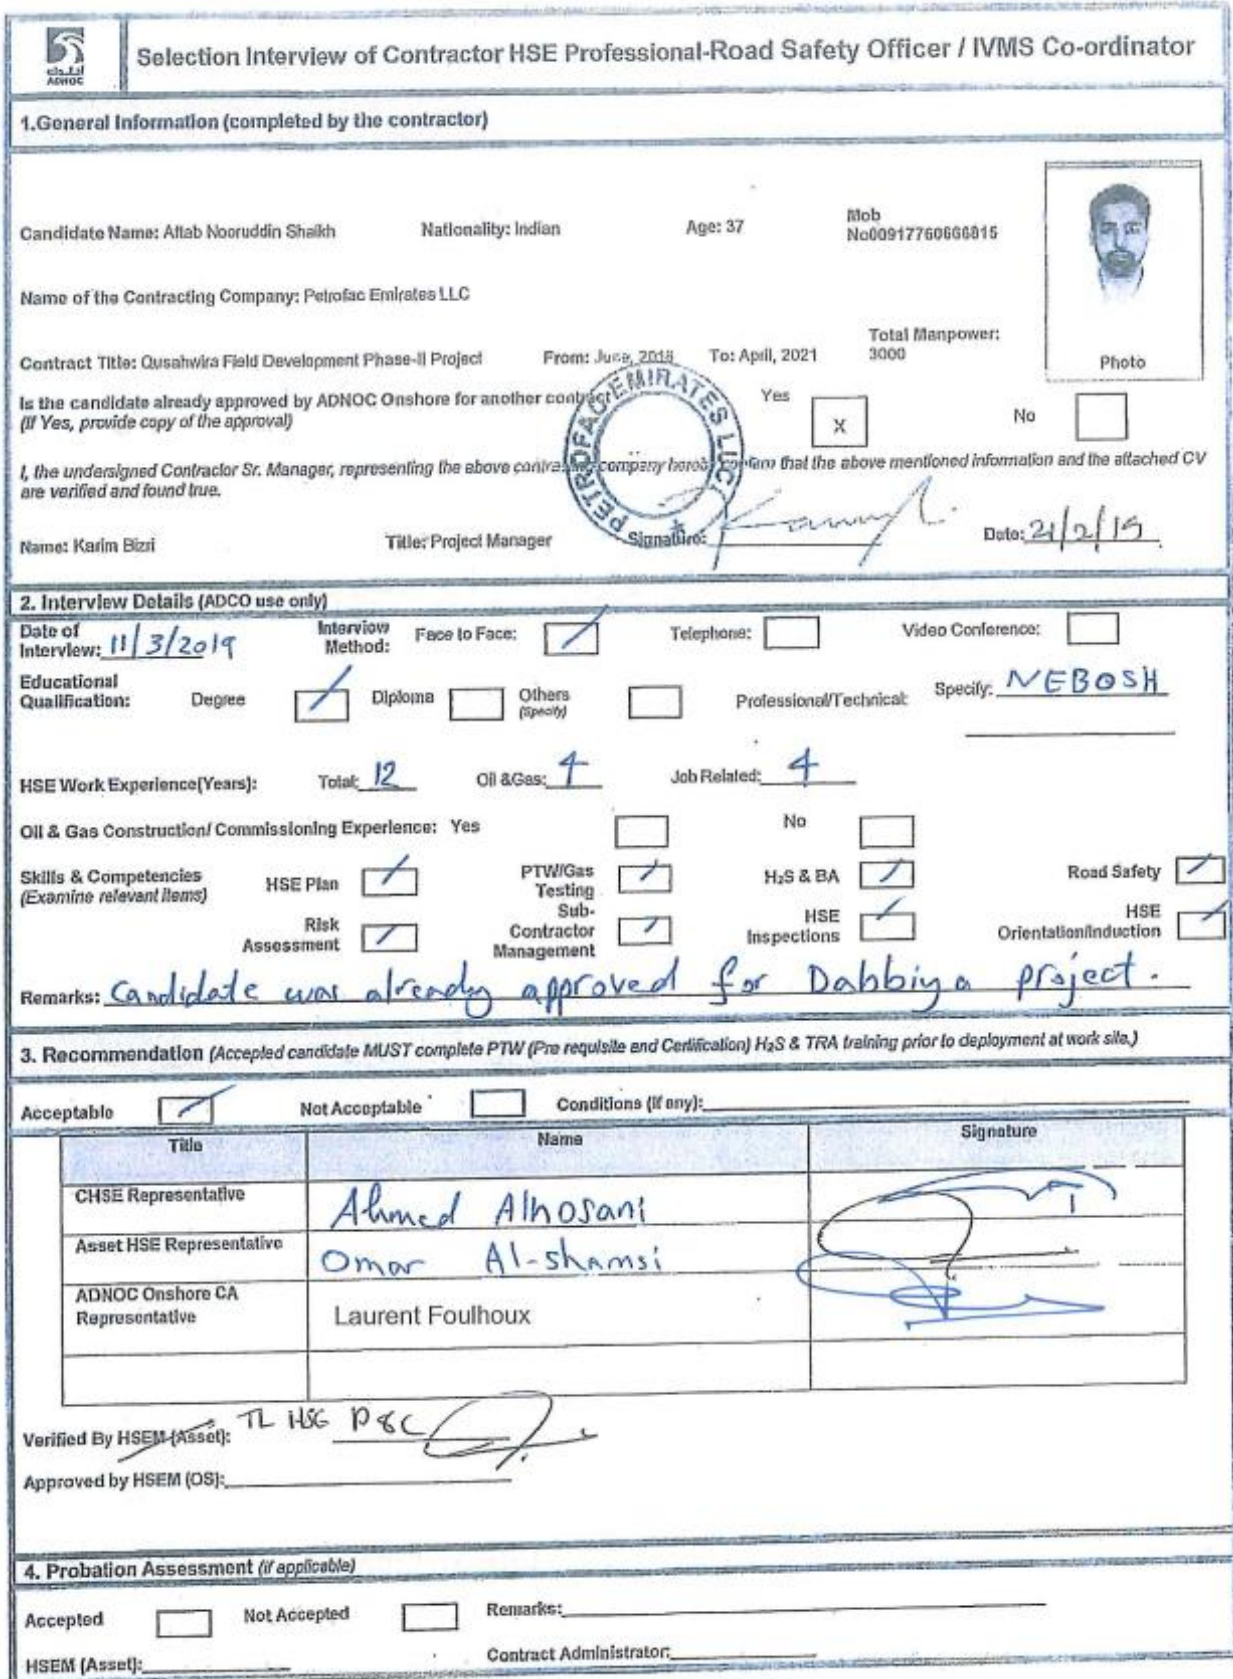 أدنوك
ADNOC
Selection Interview of Contractor HSE Professional-Road Safety Officer / IVMS Co-ordinator
1.General Information (completed by the contractor)
Candidate Name: Aftab Nooruddin Shaikh Nationality: Indian Age: 37 Mob No00917760666815
Name of the Contracting Company: Petrofac Emirates LLC
Contract Title: Qusahwira Field Development Phase-II Project From: June, 2018 To: April, 2021 Total Manpower: 3000
Photo
Is the candidate already approved by ADNOC Onshore for another contract Yes X No
(If Yes, provide copy of the approval)
PETROFAC EMIRATES LLC
I, the undersigned Contractor Sr. Manager, representing the above contracting company hereby confirm that the above mentioned information and the attached CV
are verified and found true.
Name: Karim Bizri Title: Project Manager Signature: Date: 21/2/19
2. Interview Details (ADCO use only)
Date of Interview: 11/3/2019 Interview Method: Face to Face: Telephone: Video Conference:
Educational Qualification: Degree Diploma Others (Specify) Professional/Technical: Specify: NEBOSH
HSE Work Experience(Years): Total: 12 Oil &Gas: 4 Job Related: 4
Oil & Gas Construction/ Commissioning Experience: Yes No
Skills & Competencies (Examine relevant items) HSE Plan PTW/Gas Testing H₂S & BA Road Safety
Risk Assessment Sub-Contractor Management HSE Inspections HSE Orientation/Induction
Remarks: Candidate was already approved for Dabbiya project.
3. Recommendation (Accepted candidate MUST complete PTW (Pre requisite and Certification) H₂S & TRA training prior to deployment at work site.)
Acceptable Not Acceptable Conditions (if any):
Title Name Signature
CHSE Representative Ahmed Alhosani
Asset HSE Representative Omar Al-shamsi
ADNOC Onshore CA Representative Laurent Foulhoux
Verified By HSEM (Asset): TL HSE P&C
Approved by HSEM (OS):
4. Probation Assessment (if applicable)
Accepted Not Accepted Remarks:
HSEM (Asset): Contract Administrator: